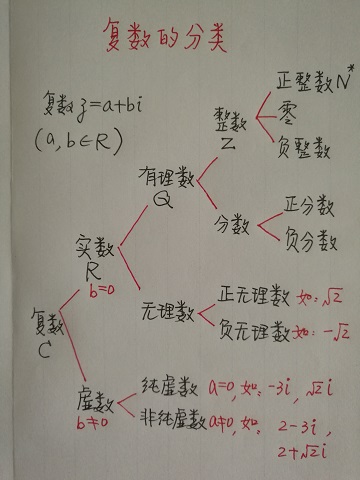 复数的分类
复数z=a+bi
(a,b∈R)
复数
C
实数
R
b=0
有理数
Q
整数
Z
正整数N*
零
负整数
分数
正分数
负分数
无理数
正无理数 如:√2
负无理数 如:-√2
虚数
b≠0
纯虚数 a=0,如:-3i,√2i
非纯虚数 a≠0,如: 2-3i,
2+√2i